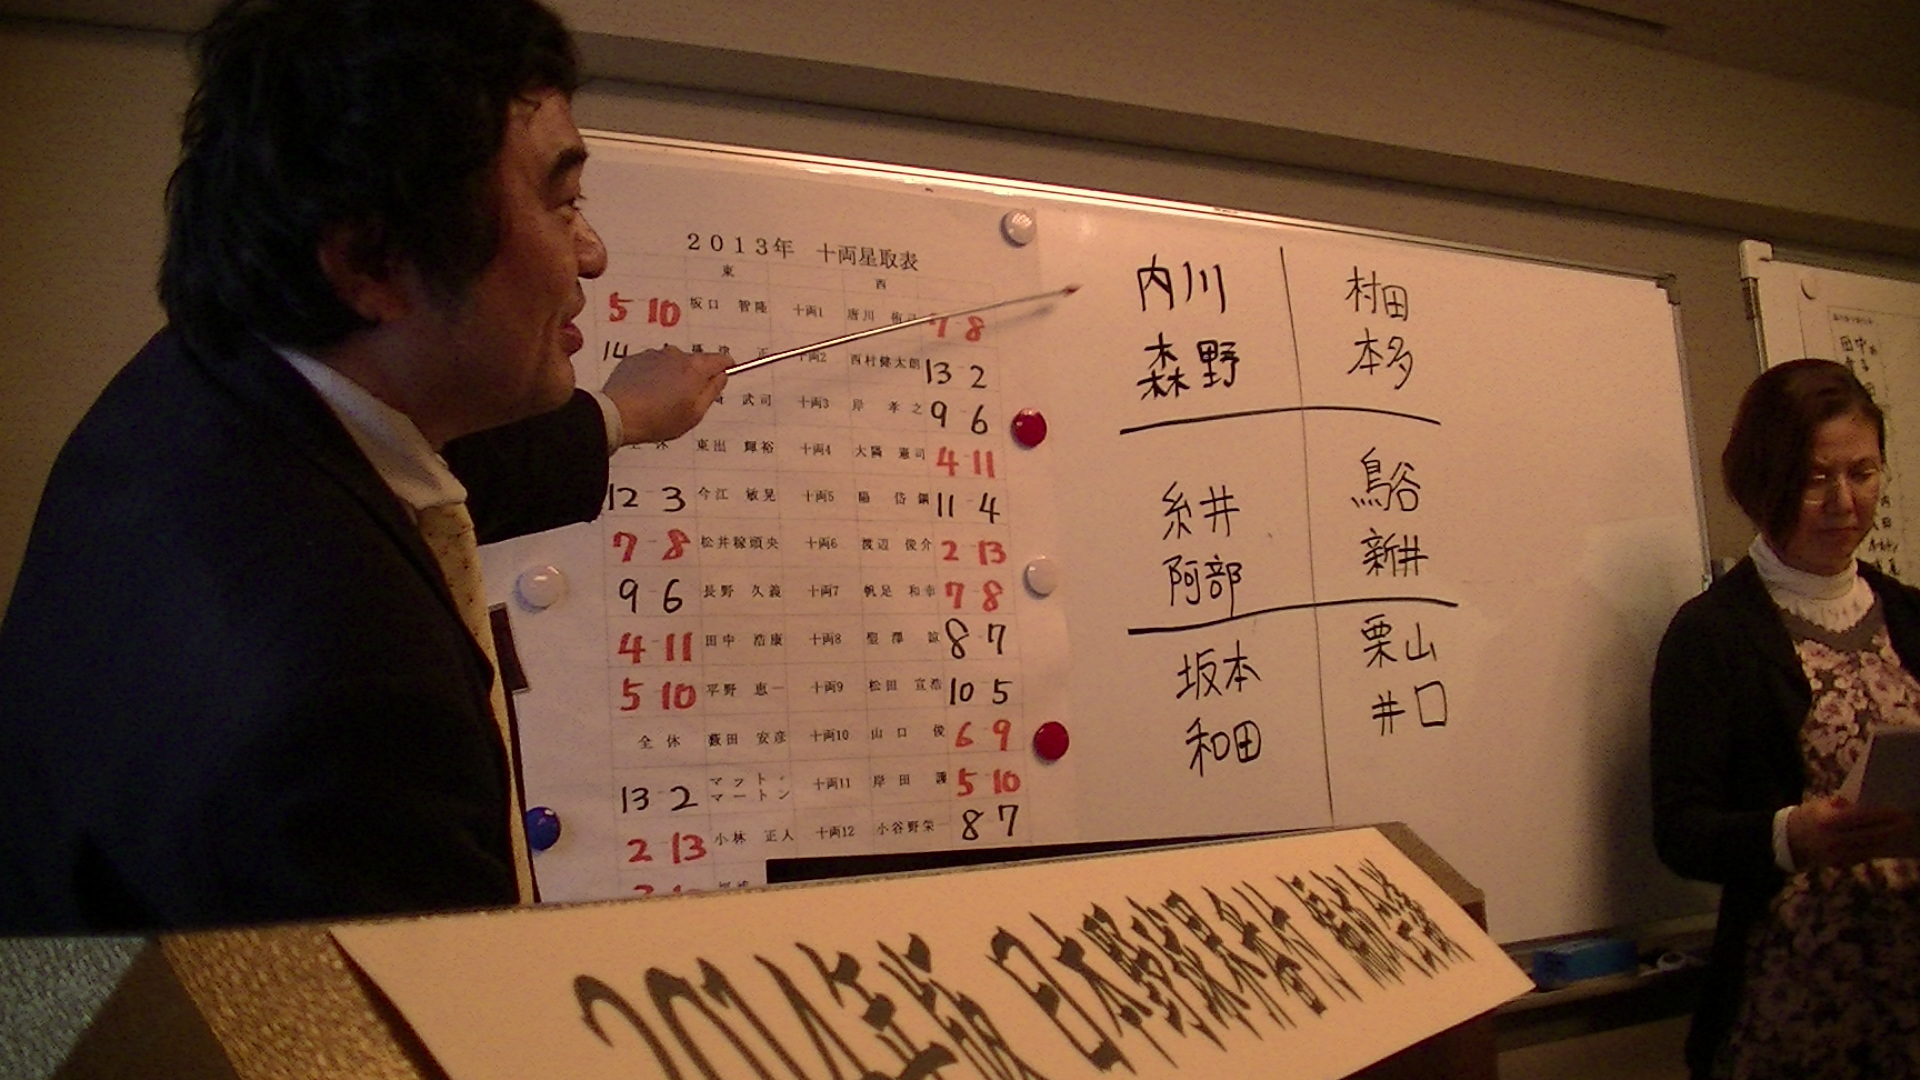 2013年 十両星取表
東 西
5 10 坂口 智隆 十両1 唐川 侑己 7 8
14 摂津 正 十両2 西村健太朗 13 2
武司 十両3 岸 孝之 9 6
全休 東出 輝裕 十両4 大隣 憲司 4 11
12 3 今江 敏晃 十両5 陽 岱鋼 11 4
7 8 松井稼頭央 十両6 渡辺 俊介 2 13
9 6 長野 久義 十両7 帆足 和幸 7 8
4 11 田中 浩康 十両8 聖澤 諒 8 7
5 10 平野 恵一 十両9 松田 宣浩 10 5
全休 薮田 安彦 十両10 山口 俊 6 9
13 2 マット・マートン 十両11 岸田 護 5 10
2 13 小林 正人 十両12 小谷野栄一 8 7
内川 村田
森野 本多
糸井 鳥谷
阿部 新井
坂本 栗山
和田 井口
2014年版 日本野球界番付 編成会議